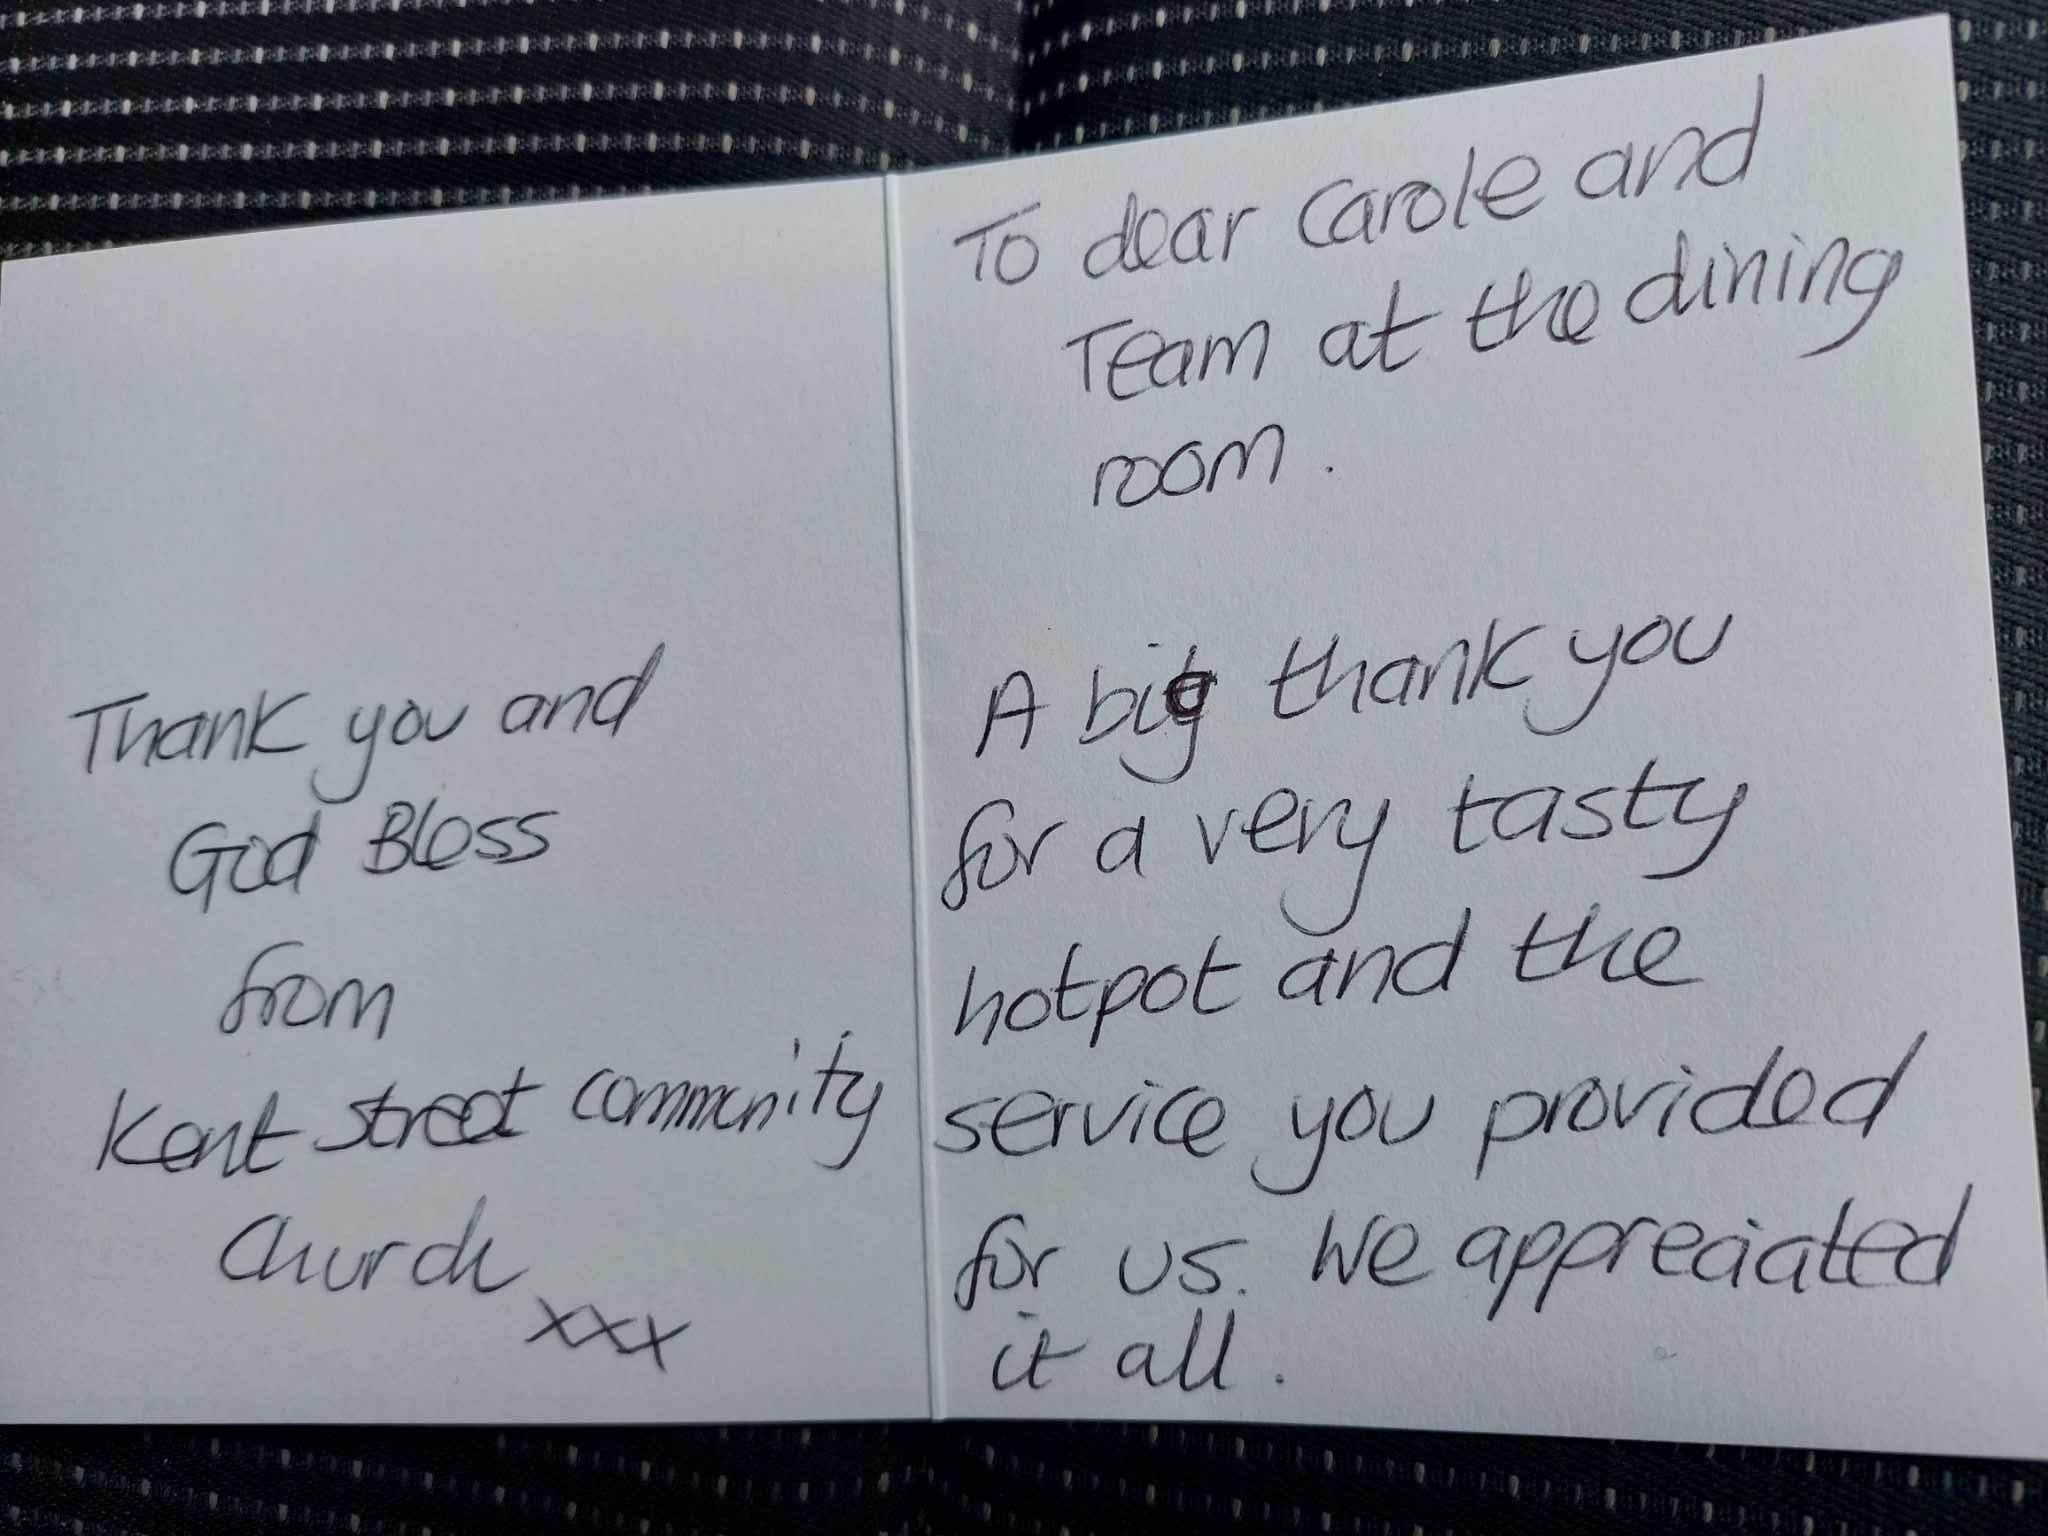 To dear Carole and
Team at the dining
room.
A big thank you
for a very tasty
hotpot and the
service you provided
for us. We appreciated
it all.
Thank you and
God Bless
from
Kent Street community
Church
xxx